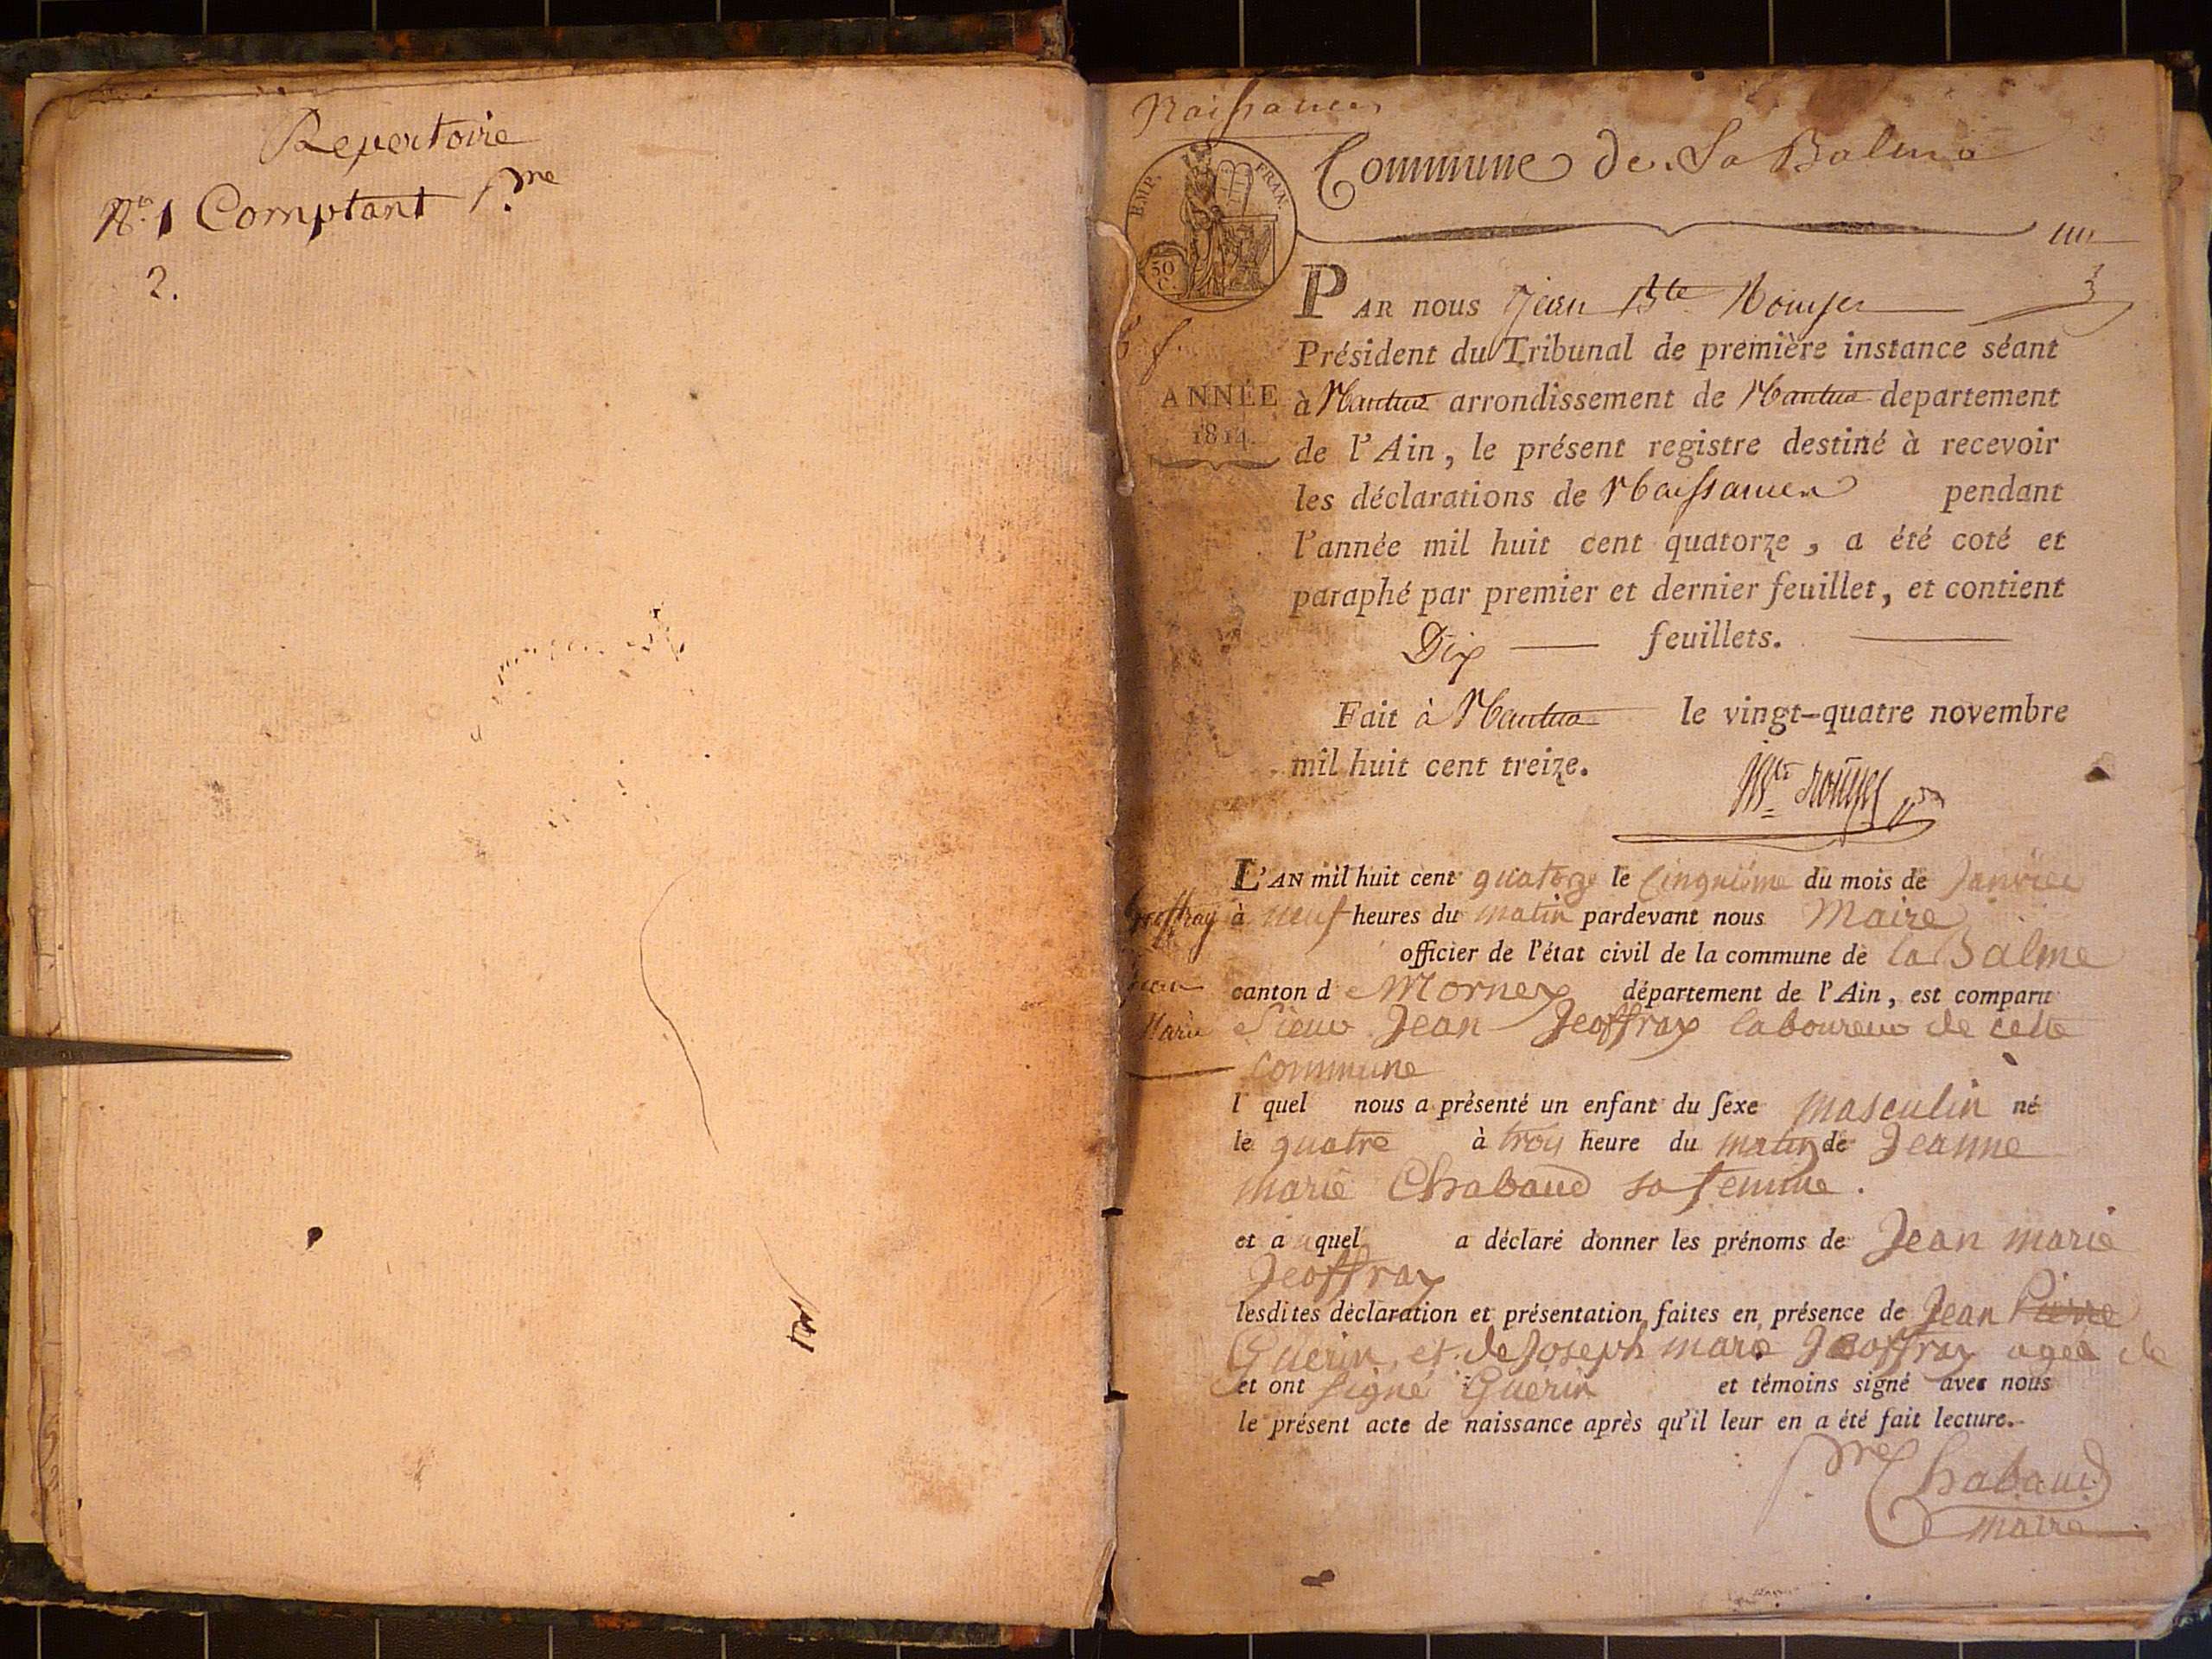 Repertoire
N.° 1 Comptant P.re
2.
Naissances
Commune de La Balme
EMP. FRAN.
50 C.
PAR nous Jean Bte
3
Président du Tribunal de première instance séant
ANNÉE
1814.
à Nantua arrondissement de Nantua departement
de l'Ain, le présent registre destiné à recevoir
les déclarations de Naissances pendant
l'année mil huit cent quatorze, a été coté et
paraphé par premier et dernier feuillet, et contient
Dix feuillets.
Fait à Nantua le vingt-quatre novembre
mil huit cent treize.
L'AN mil huit cent quatorze le Cinquième du mois de Janvier
Jeoffray
à neuf heures du matin pardevant nous Maire
officier de l'état civil de la commune de la Balme
Jean
canton d e Mornex département de l'Ain, est comparu
Marie
Sieur Jean Jeoffray laboureur de cette
Commune
l quel nous a présenté un enfant du sexe masculin né
le quatre à trois heure du matin de Jeanne
marie Chabaud sa femme.
et a uquel a déclaré donner les prénoms de Jean marie
Jeoffray
lesdites déclaration et présentation faites en présence de Jean Pierre
Guerin, et de Joseph marie Jeoffray agée de
et ont signé Guerin et témoins signé avec nous
le présent acte de naissance après qu'il leur en a été fait lecture.
P.re Chabaud
maire